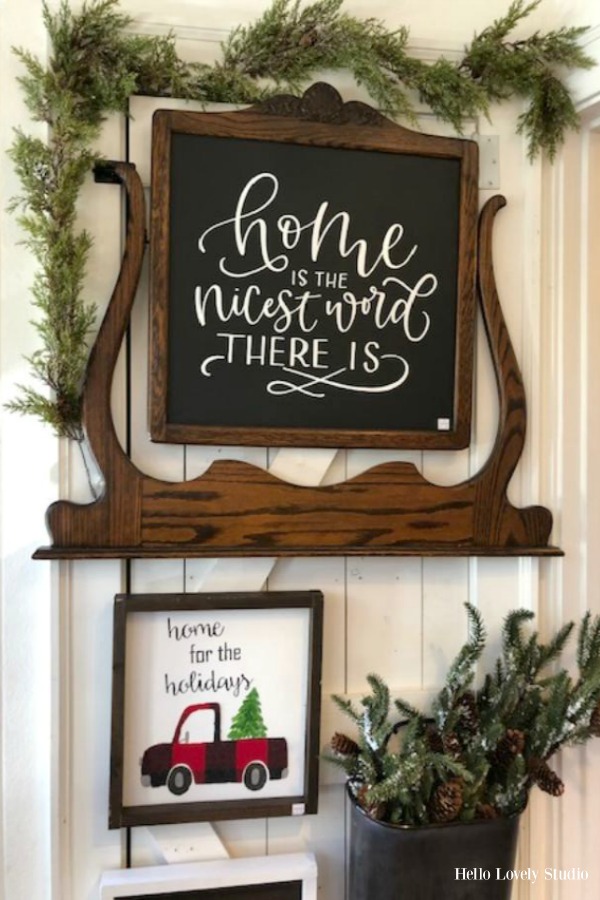 home
IS THE
nicest word
THERE IS
home
for the
holidays
Hello Lovely Studio